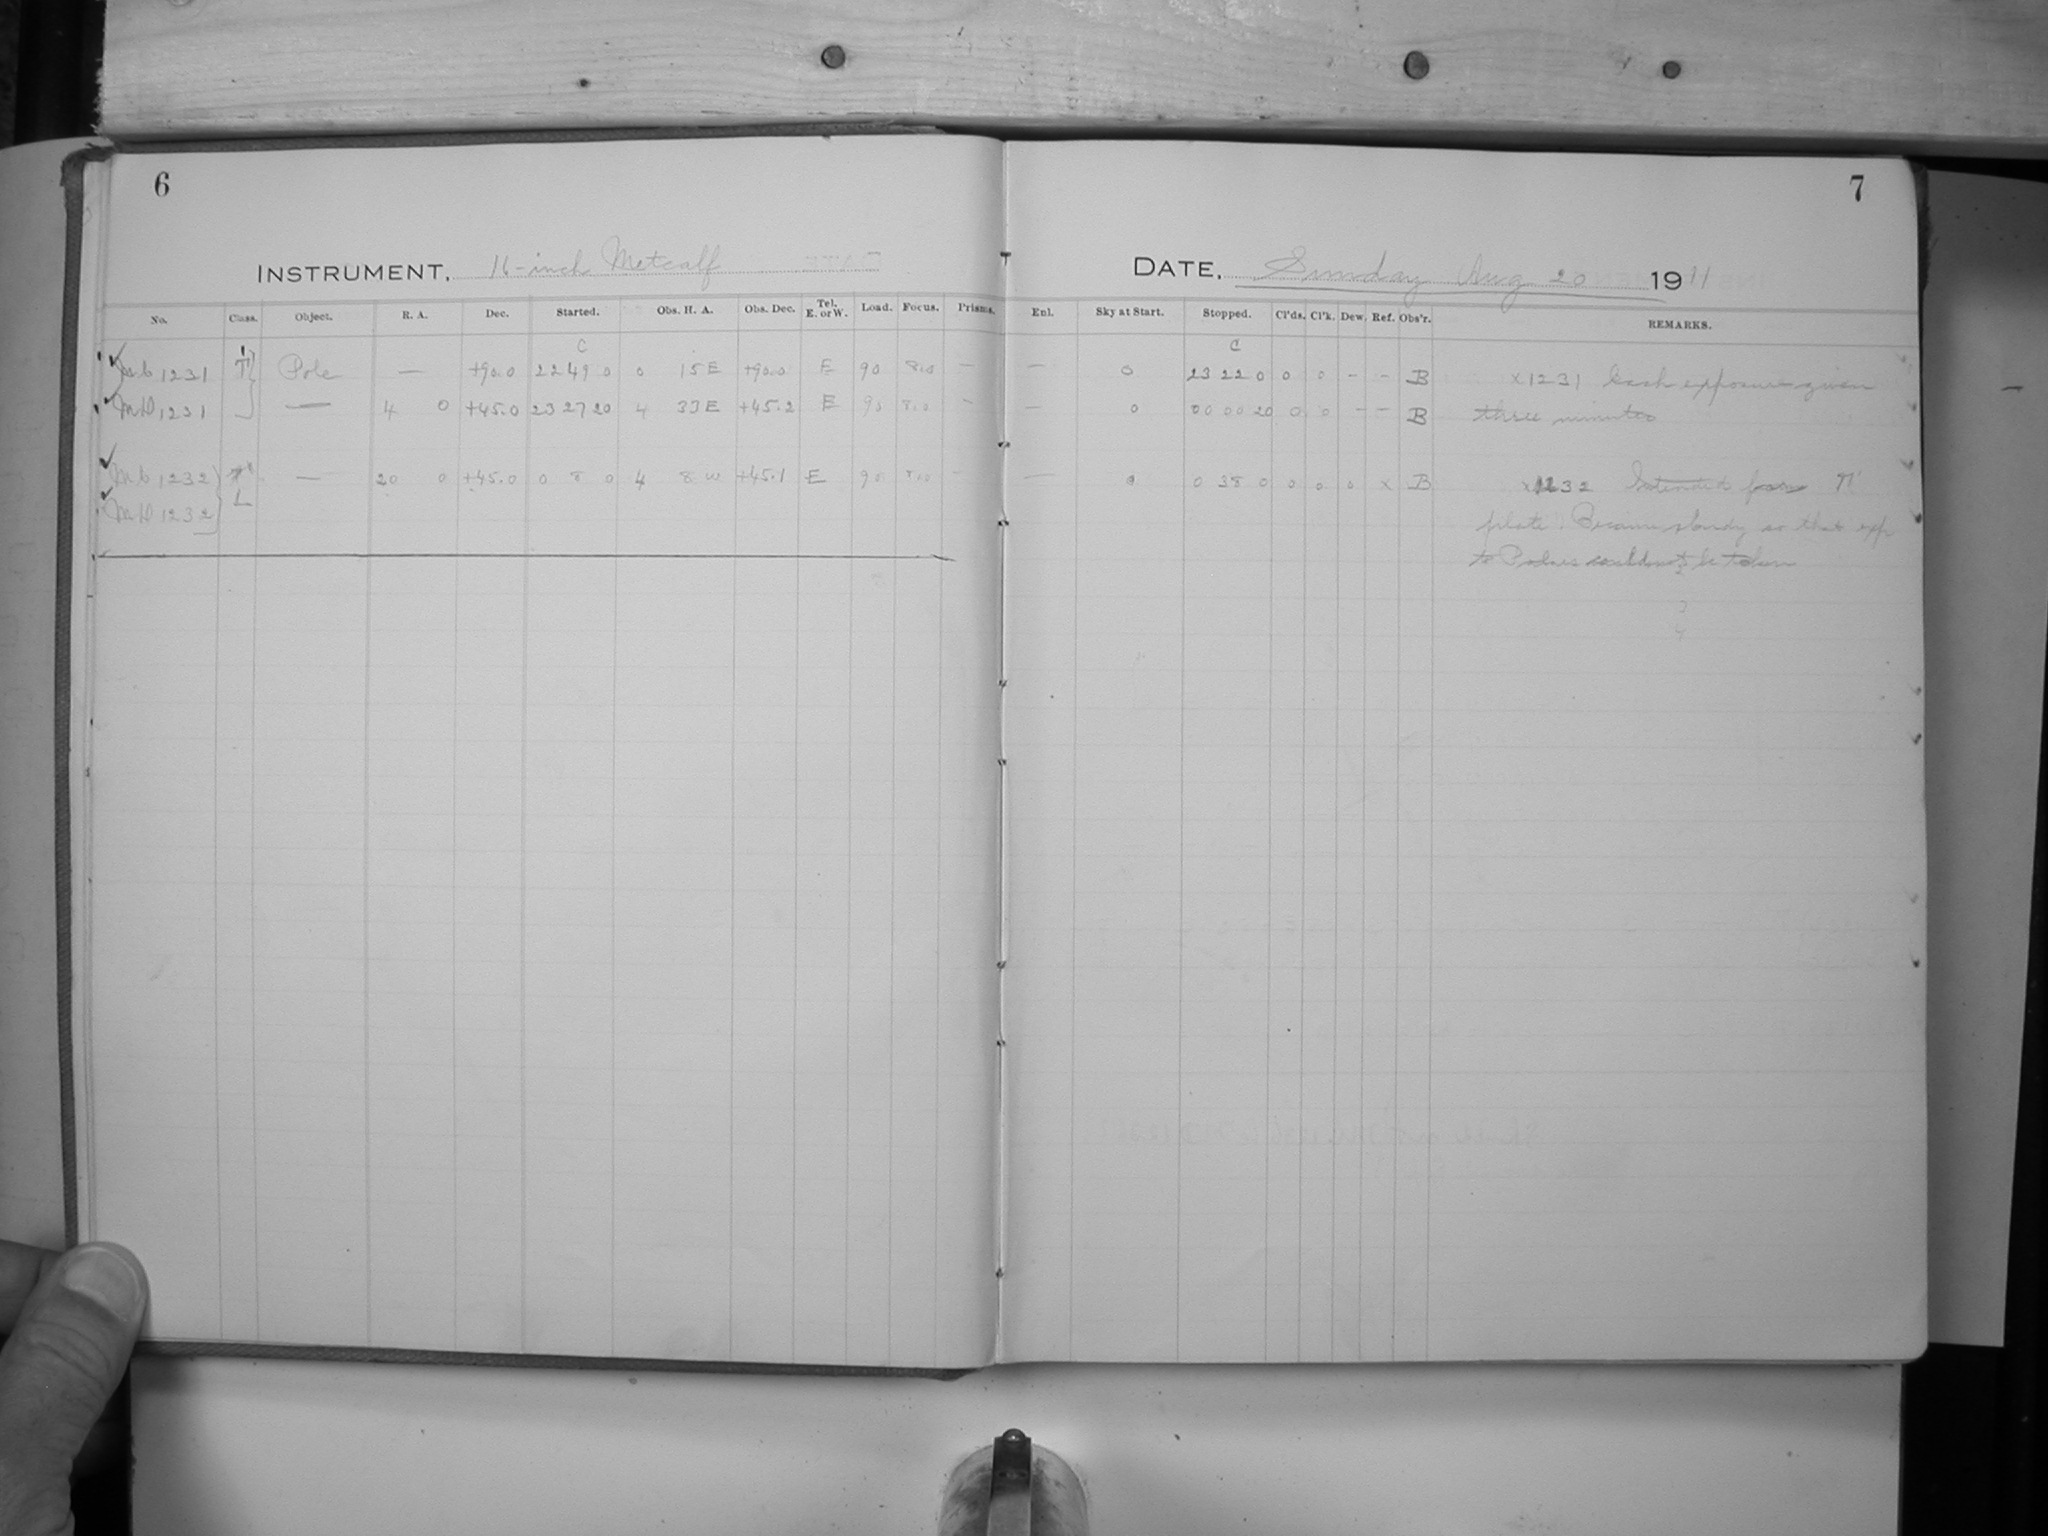 6
7
INSTRUMENT, 16-inch Metcalf
DATE, Sunday Aug 20 1911
No. Class. Object. R. A. Dec. Started. Obs. H. A. Obs. Dec. Tel. E. or W. Load. Focus. Prisms. Enl. Sky at Start. Stopped. Cl'ds. Cl'k. Dew. Ref. Obs'r. REMARKS.
C C
MC 1231 π' Pole — +90.0 22 49 0 0 15 E +90.0 E 90 8.0 — — 0 23 22 0 0 0 - - B x1231 Each exposure given
MD 1231 — 4 0 +45.0 23 27 20 4 33 E +45.2 E 90 8.0 - — 0 00 00 20 0 0 - - B three minutes
MC 1232 — 20 0 +45.0 0 8 0 4 8 W +45.1 E 90 8.0 - — 0 0 38 0 0 0 0 x B x1232 Intended for π'
MD 1232 L plate. Became cloudy so that exp
to could not be taken